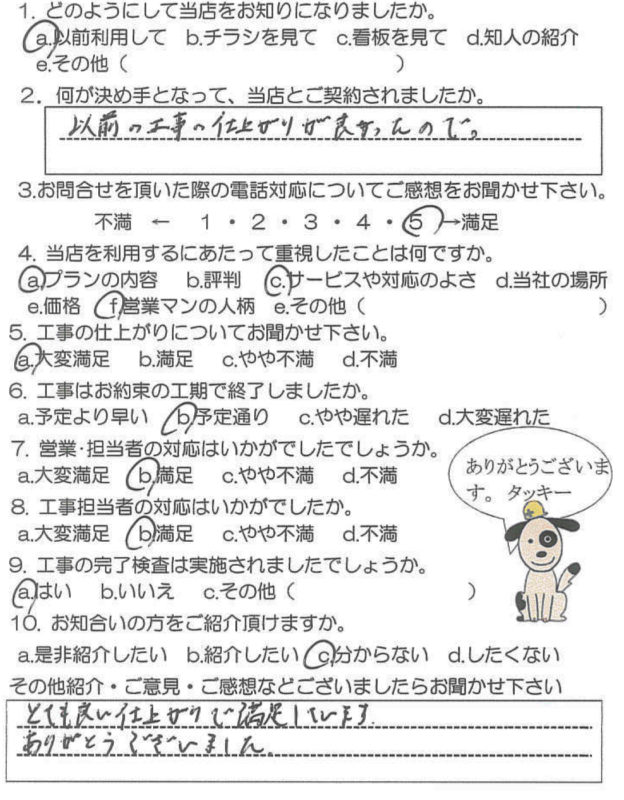 1. どのようにして当店をお知りになりましたか。
a.以前利用して b.チラシを見て c.看板を見て d.知人の紹介
e.その他（ ）
2. 何が決め手となって、当店とご契約されましたか。
以前の工事の仕上がりが良かったので。
3.お問合せを頂いた際の電話対応についてご感想をお聞かせ下さい。
不満 ← 1・2・3・4・5→満足
4. 当店を利用するにあたって重視したことは何ですか。
a.プランの内容 b.評判 c.サービスや対応のよさ d.当社の場所
e.価格 f.営業マンの人柄 e.その他（ ）
5. 工事の仕上がりについてお聞かせ下さい。
a.大変満足 b.満足 c.やや不満 d.不満
6. 工事はお約束の工期で終了しましたか。
a.予定より早い b.予定通り c.やや遅れた d.大変遅れた
7. 営業･担当者の対応はいかがでしたでしょうか。
a.大変満足 b.満足 c.やや不満 d.不満
ありがとうございま
す。 タッキー
8. 工事担当者の対応はいかがでしたか。
a.大変満足 b.満足 c.やや不満 d.不満
9. 工事の完了検査は実施されましたでしょうか。
a.はい b.いいえ c.その他（ ）
10. お知合いの方をご紹介頂けますか。
a.是非紹介したい b.紹介したい c.分からない d.したくない
その他紹介・ご意見・ご感想などございましたらお聞かせ下さい
とても良い仕上がりで満足しています.
ありがとうございました。